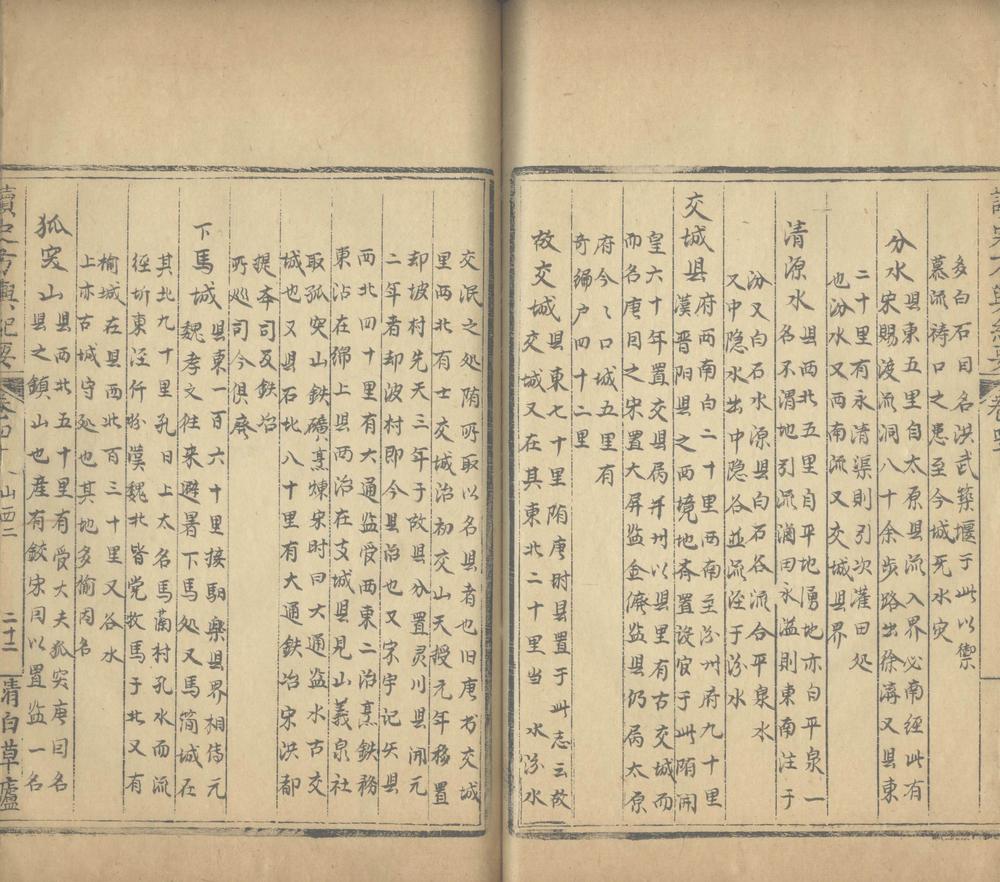 多白石因名洪武築堰于此以禦
慕流祷口之患至今城死水灾
分水县東五里自太原县流入界必南经此有
宋賜渡流洞八十余步路出徐溝又县東
二十里有永清渠則引次灌田処
也汾水又西南流又交城县界
清源水县西北五里自平地湧地亦白平泉一
名不不渭地引流滷田永溢則東南注于
汾又白石水源县白石谷流合平泉水
又中隐水出中隐谷並流泾于汾水
交城县府西南白二十里西南至汾州府九十里
漢晋阳县之西境地斉置设官于此隋開
皇六十年置交县属并州以县里有古交城而
而名唐因之宋置大屏监金廃监县仍属太原
府今〻口城五里有
奇編户四十二里
故交城县東七十里隋唐时县置于此志云故
交城又在其東北二十里当 水汾水
交泯之处隋所取以名县者也旧唐书交城
里西北有士交城治初交山天授元年移置
却坡村先天三年于故县分置灵川县開元
二年者却波村即今县治也又宋宇记矢县
西北四十里有大通监受西東二治烹鉄務
東沾在绵上县西治在支城县見山義泉社
取孤突山鉄礦烹煉宋时曰大通监水古交
城也又县石北八十里有大通鉄冶宋洪都
提夲司及鉄冶
所巡司今俱廃
下馬城县東一百六十里接駒楽县界相传元
魏孝文往来避暑下馬処又馬简城在
其北九十里孔日上太名馬蔺村孔水而流
径圻東泾忻汾漢魏北皆党牧馬于北又有
榆城在县西北百三十里又谷水
上亦古城守処也其地多榆因名
狐突山县西北五十里有受大夫狐突唐因名
县之鎮山也産有鉄宋因以置监一名
讀史方輿紀要 卷四十 山西二 二十二 清白草廬